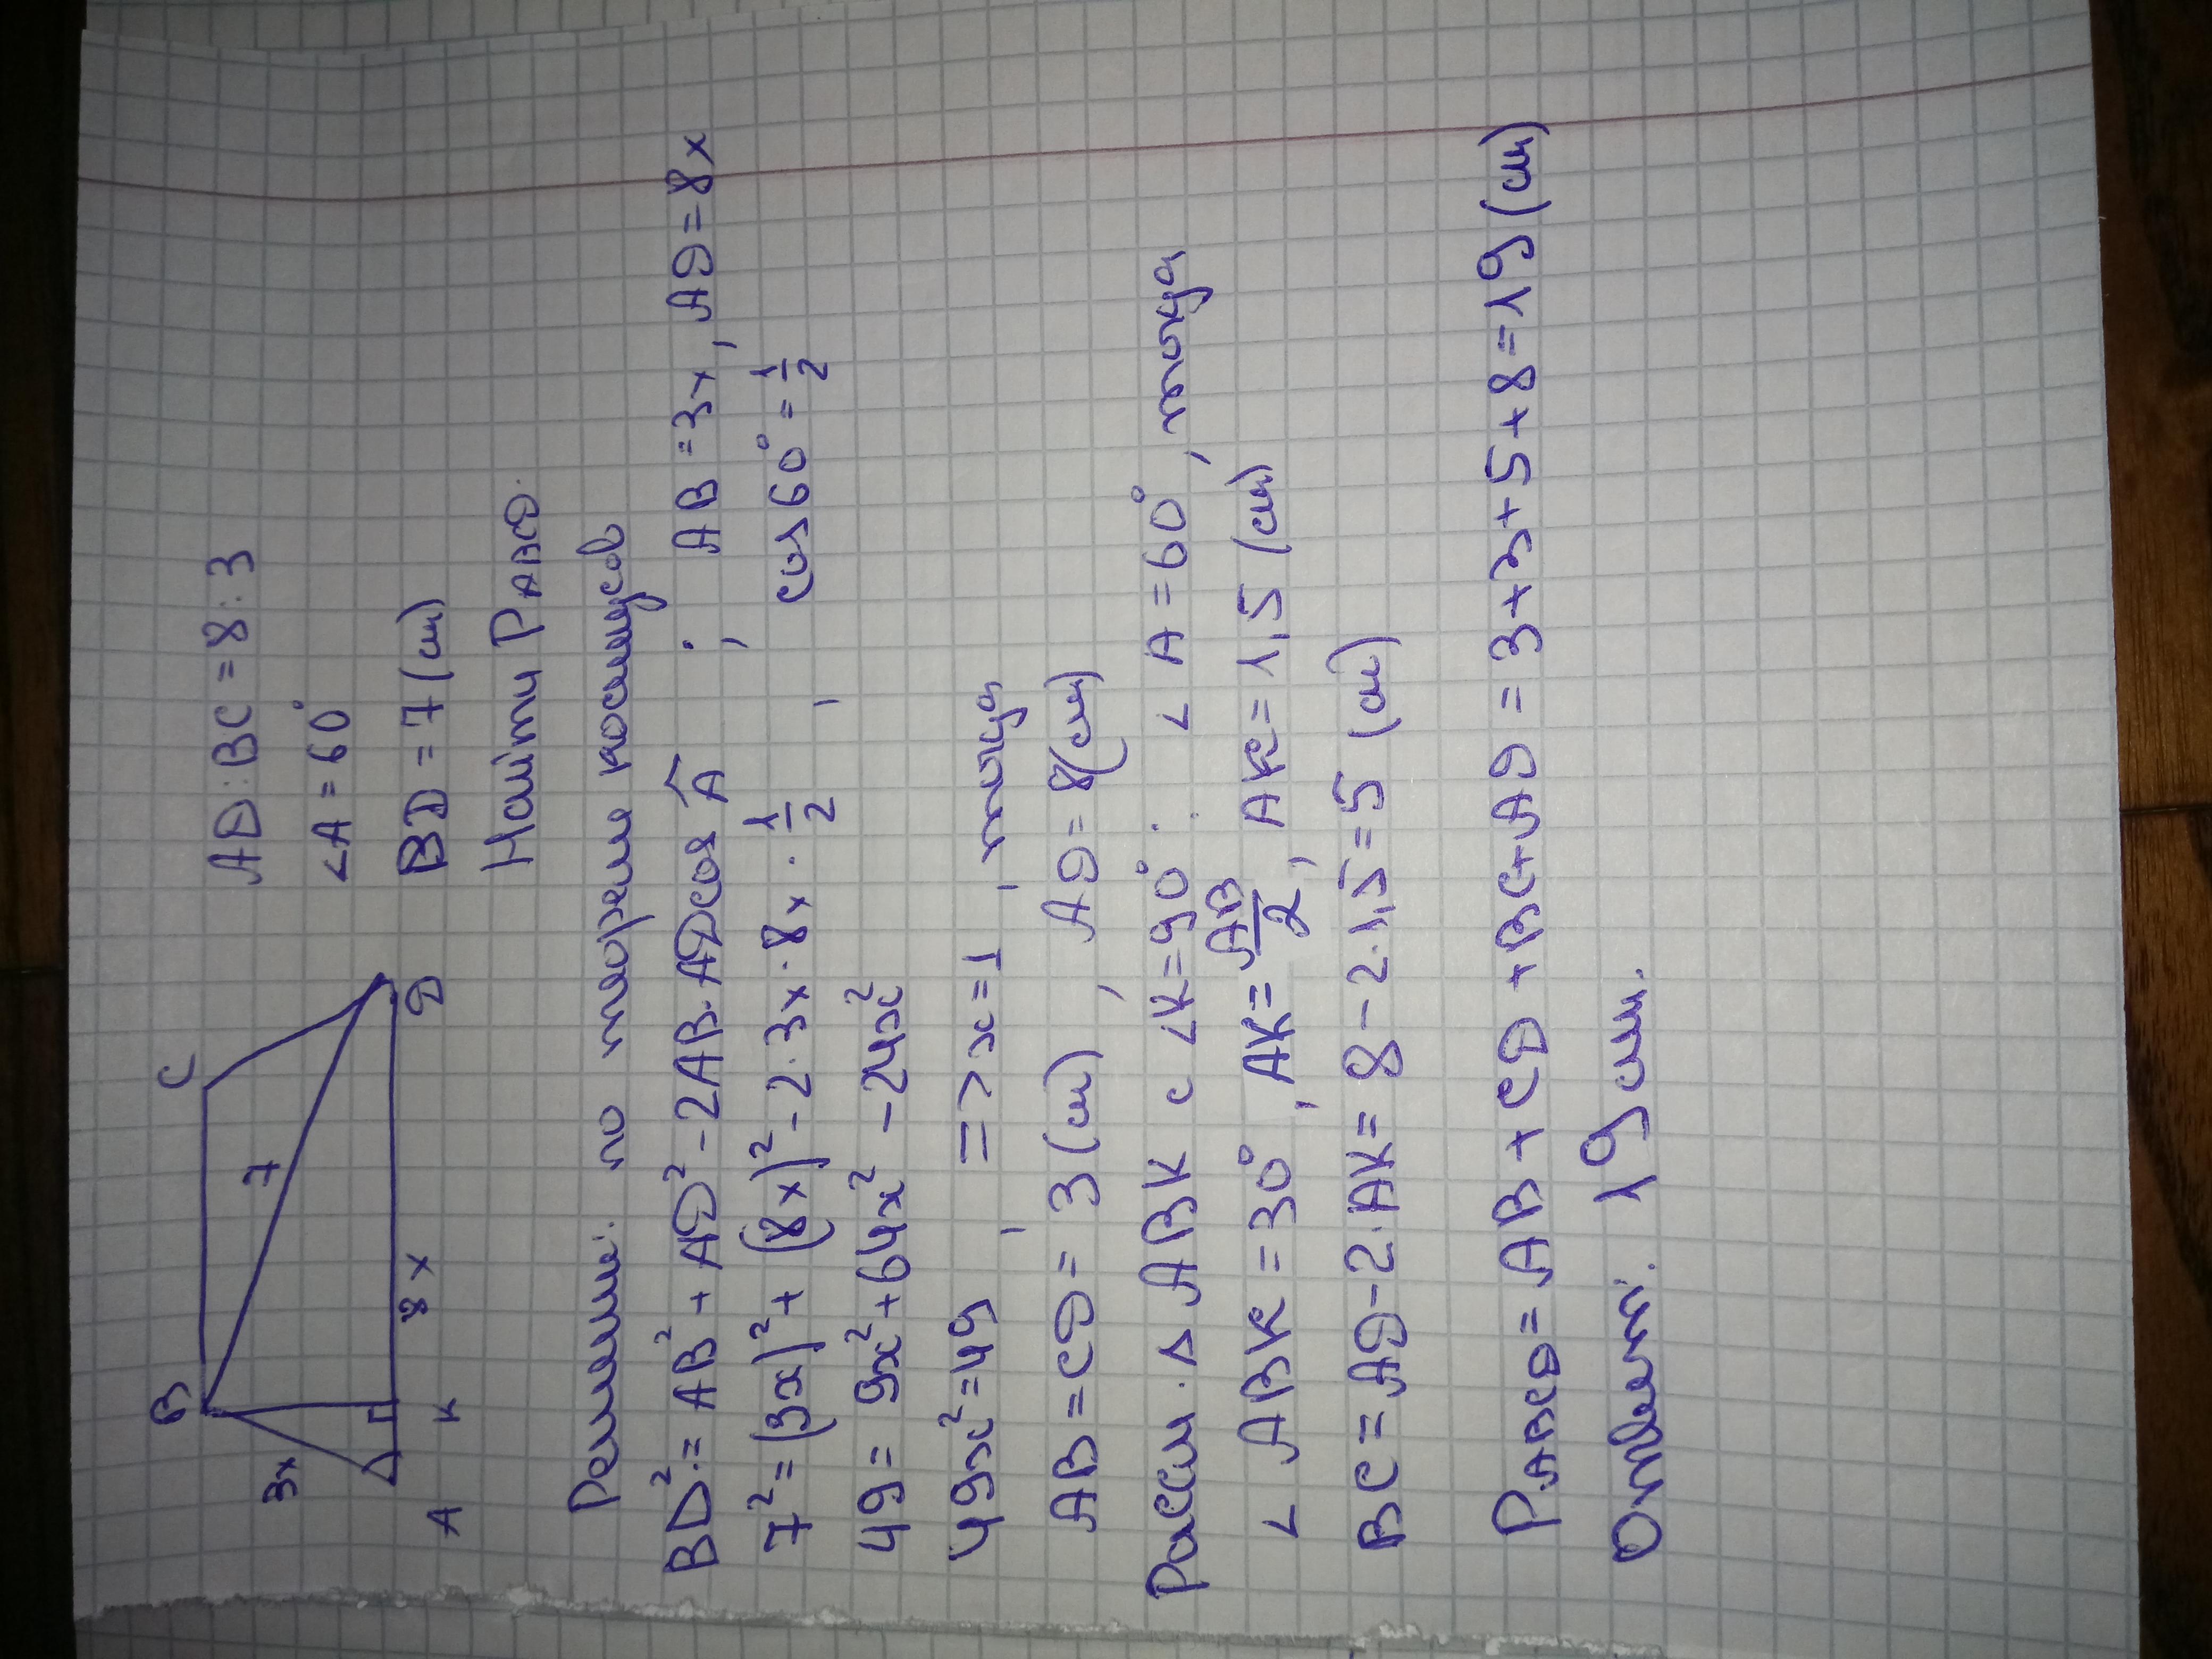 B
C
3x
7
A
K
8x
D
AD:BC=8:3
∠A=60°
BD=7(см)
Найти P ABCD.
Решение: по теореме косинусов
BD²=AB²+AD²-2AB·ADcos Â ; AB=3x, AD=8x
7²=(3x)²+(8x)²-2·3x·8x·1/2, cos60°=1/2
49=9x²+64x²-24x²
49x²=49, => x=1, тогда
AB=CD=3(см), AD=8(см)
Рассм. △ABK с ∠K=90°: ∠A=60°, тогда
∠ABK=30°, AK=AB/2, AK=1,5(см)
BC=AD-2·AK=8-2·1,5=5(см)
P ABCD=AB+CD+BC+AD=3+3+5+8=19(см)
Ответ: 19 см.